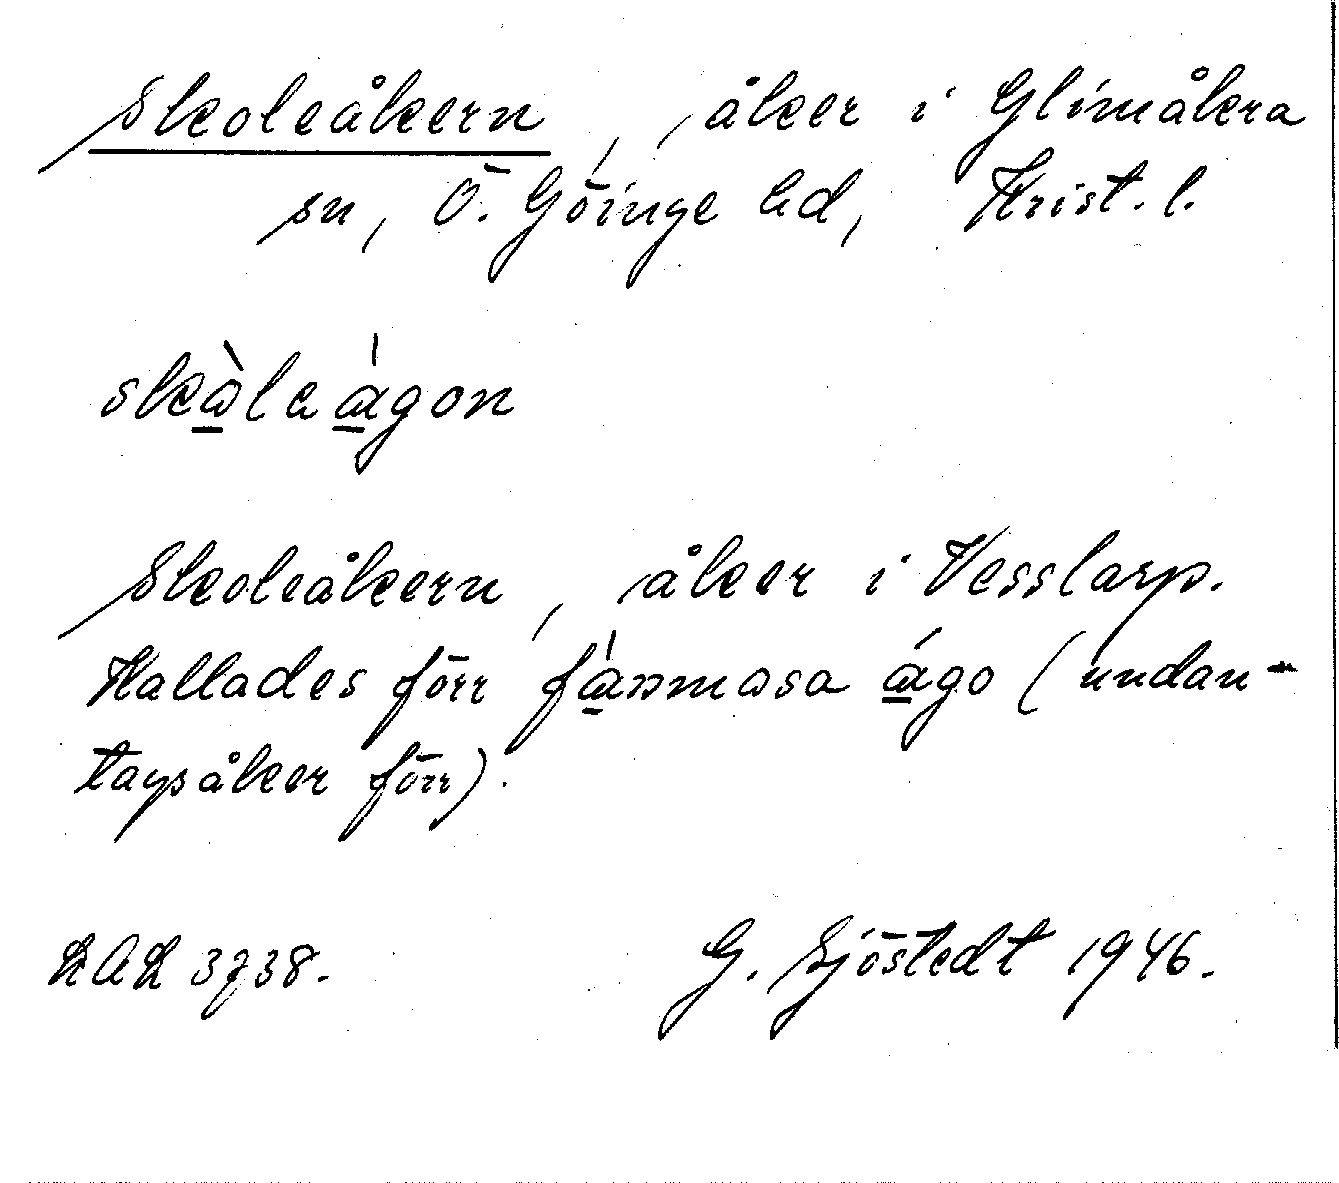 Skoleåkern, åker i Glimåkra
sn, Ö. Göinge hd, Krist. l.
skàleágon
Skoleåkern, åker i Vesslarp.
Kallades förr fánmasa ágo (undan-
tagsåker förr).
LAL 3738.
G. Sjöstedt 1946.